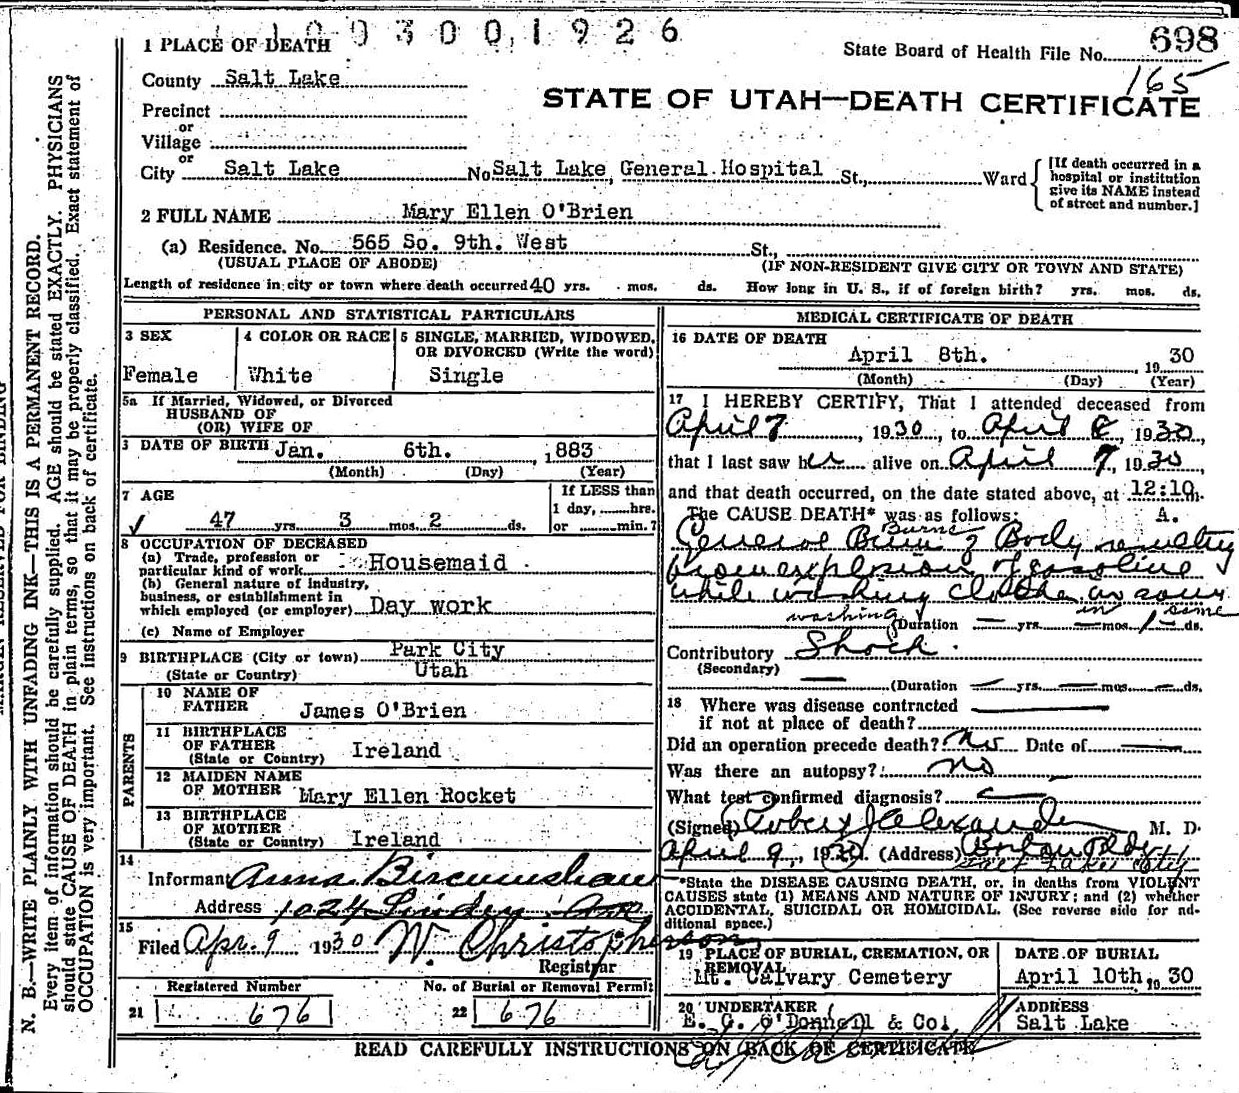 1 0 0 3 0 0 1 9 2 6
698
165
State Board of Health File No.
STATE OF UTAH—DEATH CERTIFICATE
1 PLACE OF DEATH
County Salt Lake
Precinct
or
Village
or
City Salt Lake No Salt Lake General Hospital St., Ward
[If death occurred in a
hospital or institution
give its NAME instead
of street and number.]
2 FULL NAME Mary Ellen O'Brien
(a) Residence. No. 565 So. 9th. West St.,
(USUAL PLACE OF ABODE) (IF NON-RESIDENT GIVE CITY OR TOWN AND STATE)
Length of residence in city or town where death occurred 40 yrs. mos. ds. How long in U. S., if of foreign birth? yrs. mos. ds.
PERSONAL AND STATISTICAL PARTICULARS
3 SEX 4 COLOR OR RACE 5 SINGLE, MARRIED, WIDOWED,
OR DIVORCED (Write the word)
Female White Single
5a If Married, Widowed, or Divorced
HUSBAND OF
(OR) WIFE OF
3 DATE OF BIRTH Jan. 6th. 1883
(Month) (Day) (Year)
7 AGE If LESS than
1 day, hrs.
47 yrs. 3 mos. 2 ds. or min.?
8 OCCUPATION OF DECEASED
(a) Trade, profession or
particular kind of work Housemaid
(b) General nature of industry,
business, or establishment in
which employed (or employer) Day work
(c) Name of Employer
9 BIRTHPLACE (City or town) Park City
(State or Country) Utah
PARENTS
10 NAME OF
FATHER James O'Brien
11 BIRTHPLACE
OF FATHER
(State or Country) Ireland
12 MAIDEN NAME
OF MOTHER Mary Ellen Rocket
13 BIRTHPLACE
OF MOTHER
(State or Country) Ireland
14
Informant Anna Bircumshaw
Address 1024 Linden Ave
15
Filed Apr. 9 1930 W. Christopherson
Registrar
Registered Number No. of Burial or Removal Permit
21 676 22 676
MEDICAL CERTIFICATE OF DEATH
16 DATE OF DEATH
April 8th. 1930
(Month) (Day) (Year)
17 I HEREBY CERTIFY, That I attended deceased from
April 7, 1930, to April 8, 1930,
that I last saw her alive on April 7, 1930
and that death occurred, on the date stated above, at 12:10 m.
The CAUSE DEATH* was as follows: A.
Burns
General Burn of Body resulting
from explosion of gasoline
while washing clothes
washing in same
(Duration — yrs. — mos. 1 ds.
Contributory Shock.
(Secondary)
(Duration — yrs. — mos. — ds.
18 Where was disease contracted
if not at place of death?
Did an operation precede death? No Date of
Was there an autopsy? No
What test confirmed diagnosis?
(Signed) Robert J Alexander M. D.
April 9, 1930 (Address) Boston Bldg
Salt Lake City
*State the DISEASE CAUSING DEATH, or, in deaths from VIOLENT
CAUSES state (1) MEANS AND NATURE OF INJURY; and (2) whether
ACCIDENTAL, SUICIDAL OR HOMICIDAL. (See reverse side for ad-
ditional space.)
19 PLACE OF BURIAL, CREMATION, OR
REMOVAL
Mt. Calvary Cemetery
DATE OF BURIAL
April 10th, 1930
20 UNDERTAKER
E. G. O'Donnell & Co.
ADDRESS
Salt Lake
READ CAREFULLY INSTRUCTIONS ON BACK OF CERTIFICATE
N. B.—WRITE PLAINLY WITH UNFADING INK—THIS IS A PERMANENT RECORD.
Every item of information should be carefully supplied. AGE should be stated EXACTLY. PHYSICIANS
should state CAUSE OF DEATH in plain terms, so that it may be properly classified. Exact statement of
OCCUPATION is very important. See instructions on back of certificate.